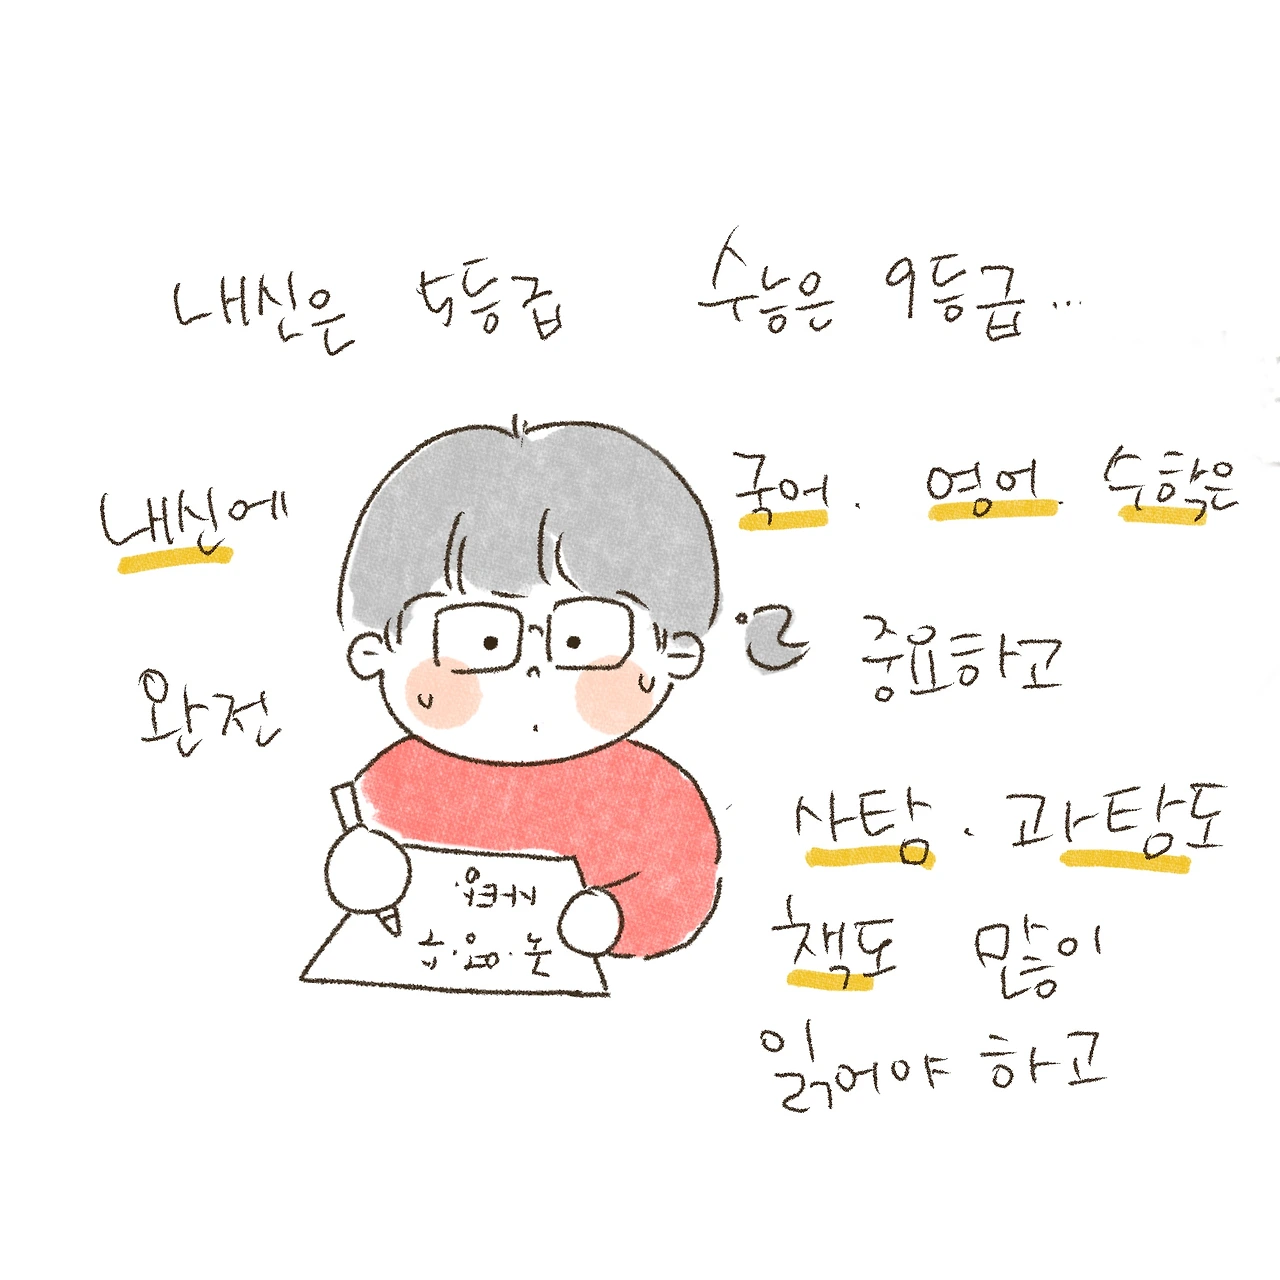 내신은 5등급 수능은 9등급...
내신에
완전
국어. 영어. 수학은
중요하고
사탐. 과탐도
책도 많이
읽어야 하고
사탐.
국.영.수